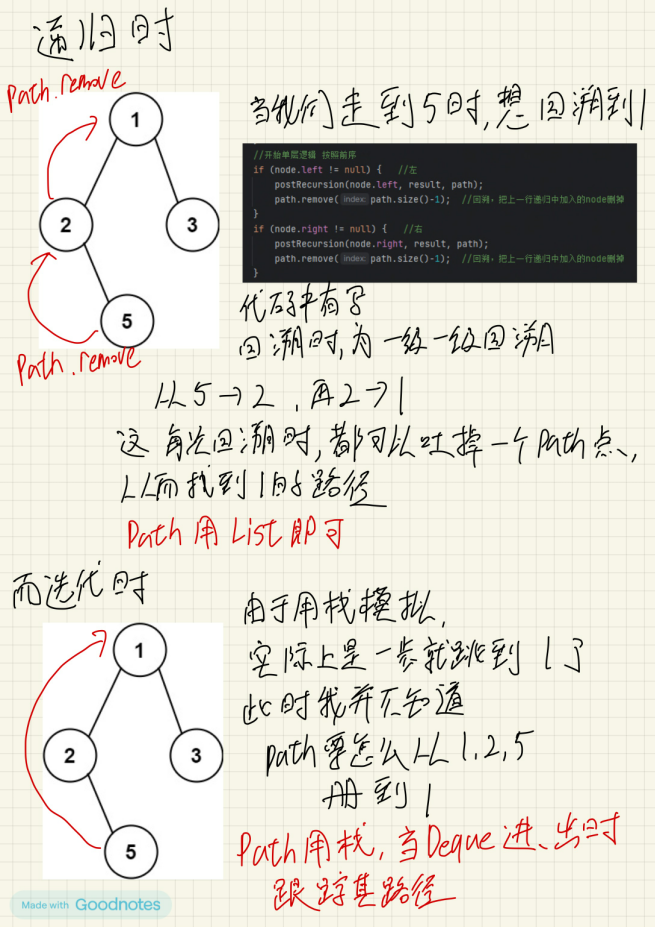 递归时
Path.remove
1
2
3
5
Path.remove
当我们走到5时,想回溯到1
//开始单层逻辑 按照前序
if (node.left != null) {   //左
    postRecursion(node.left, result, path);
    path.remove( index: path.size()-1);  //回溯，把上一行递归中加入的node删掉
}
if (node.right != null) {   //右
    postRecursion(node.right, result, path);
    path.remove( index: path.size()-1);  //回溯，把上一行递归中加入的node删掉
}
代码中有写
回溯时,为一级一级回溯
从5→2,再2→1
这每次回溯时,都可以吐掉一个Path点、
从而找到1的路径
Path用List即可
而迭代时
1
2
3
5
由于用栈模拟,
实际上是一步就跳到1了
此时我并不知道
path要怎么从1,2,5
册到1
Path用栈,当Deque进、出时
跟踪其路径
Made with Goodnotes